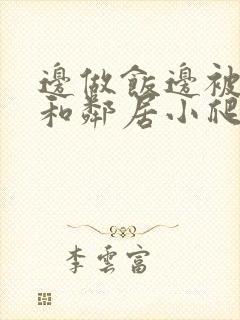 邊做飯邊被
和鄰居小爬
李雲富